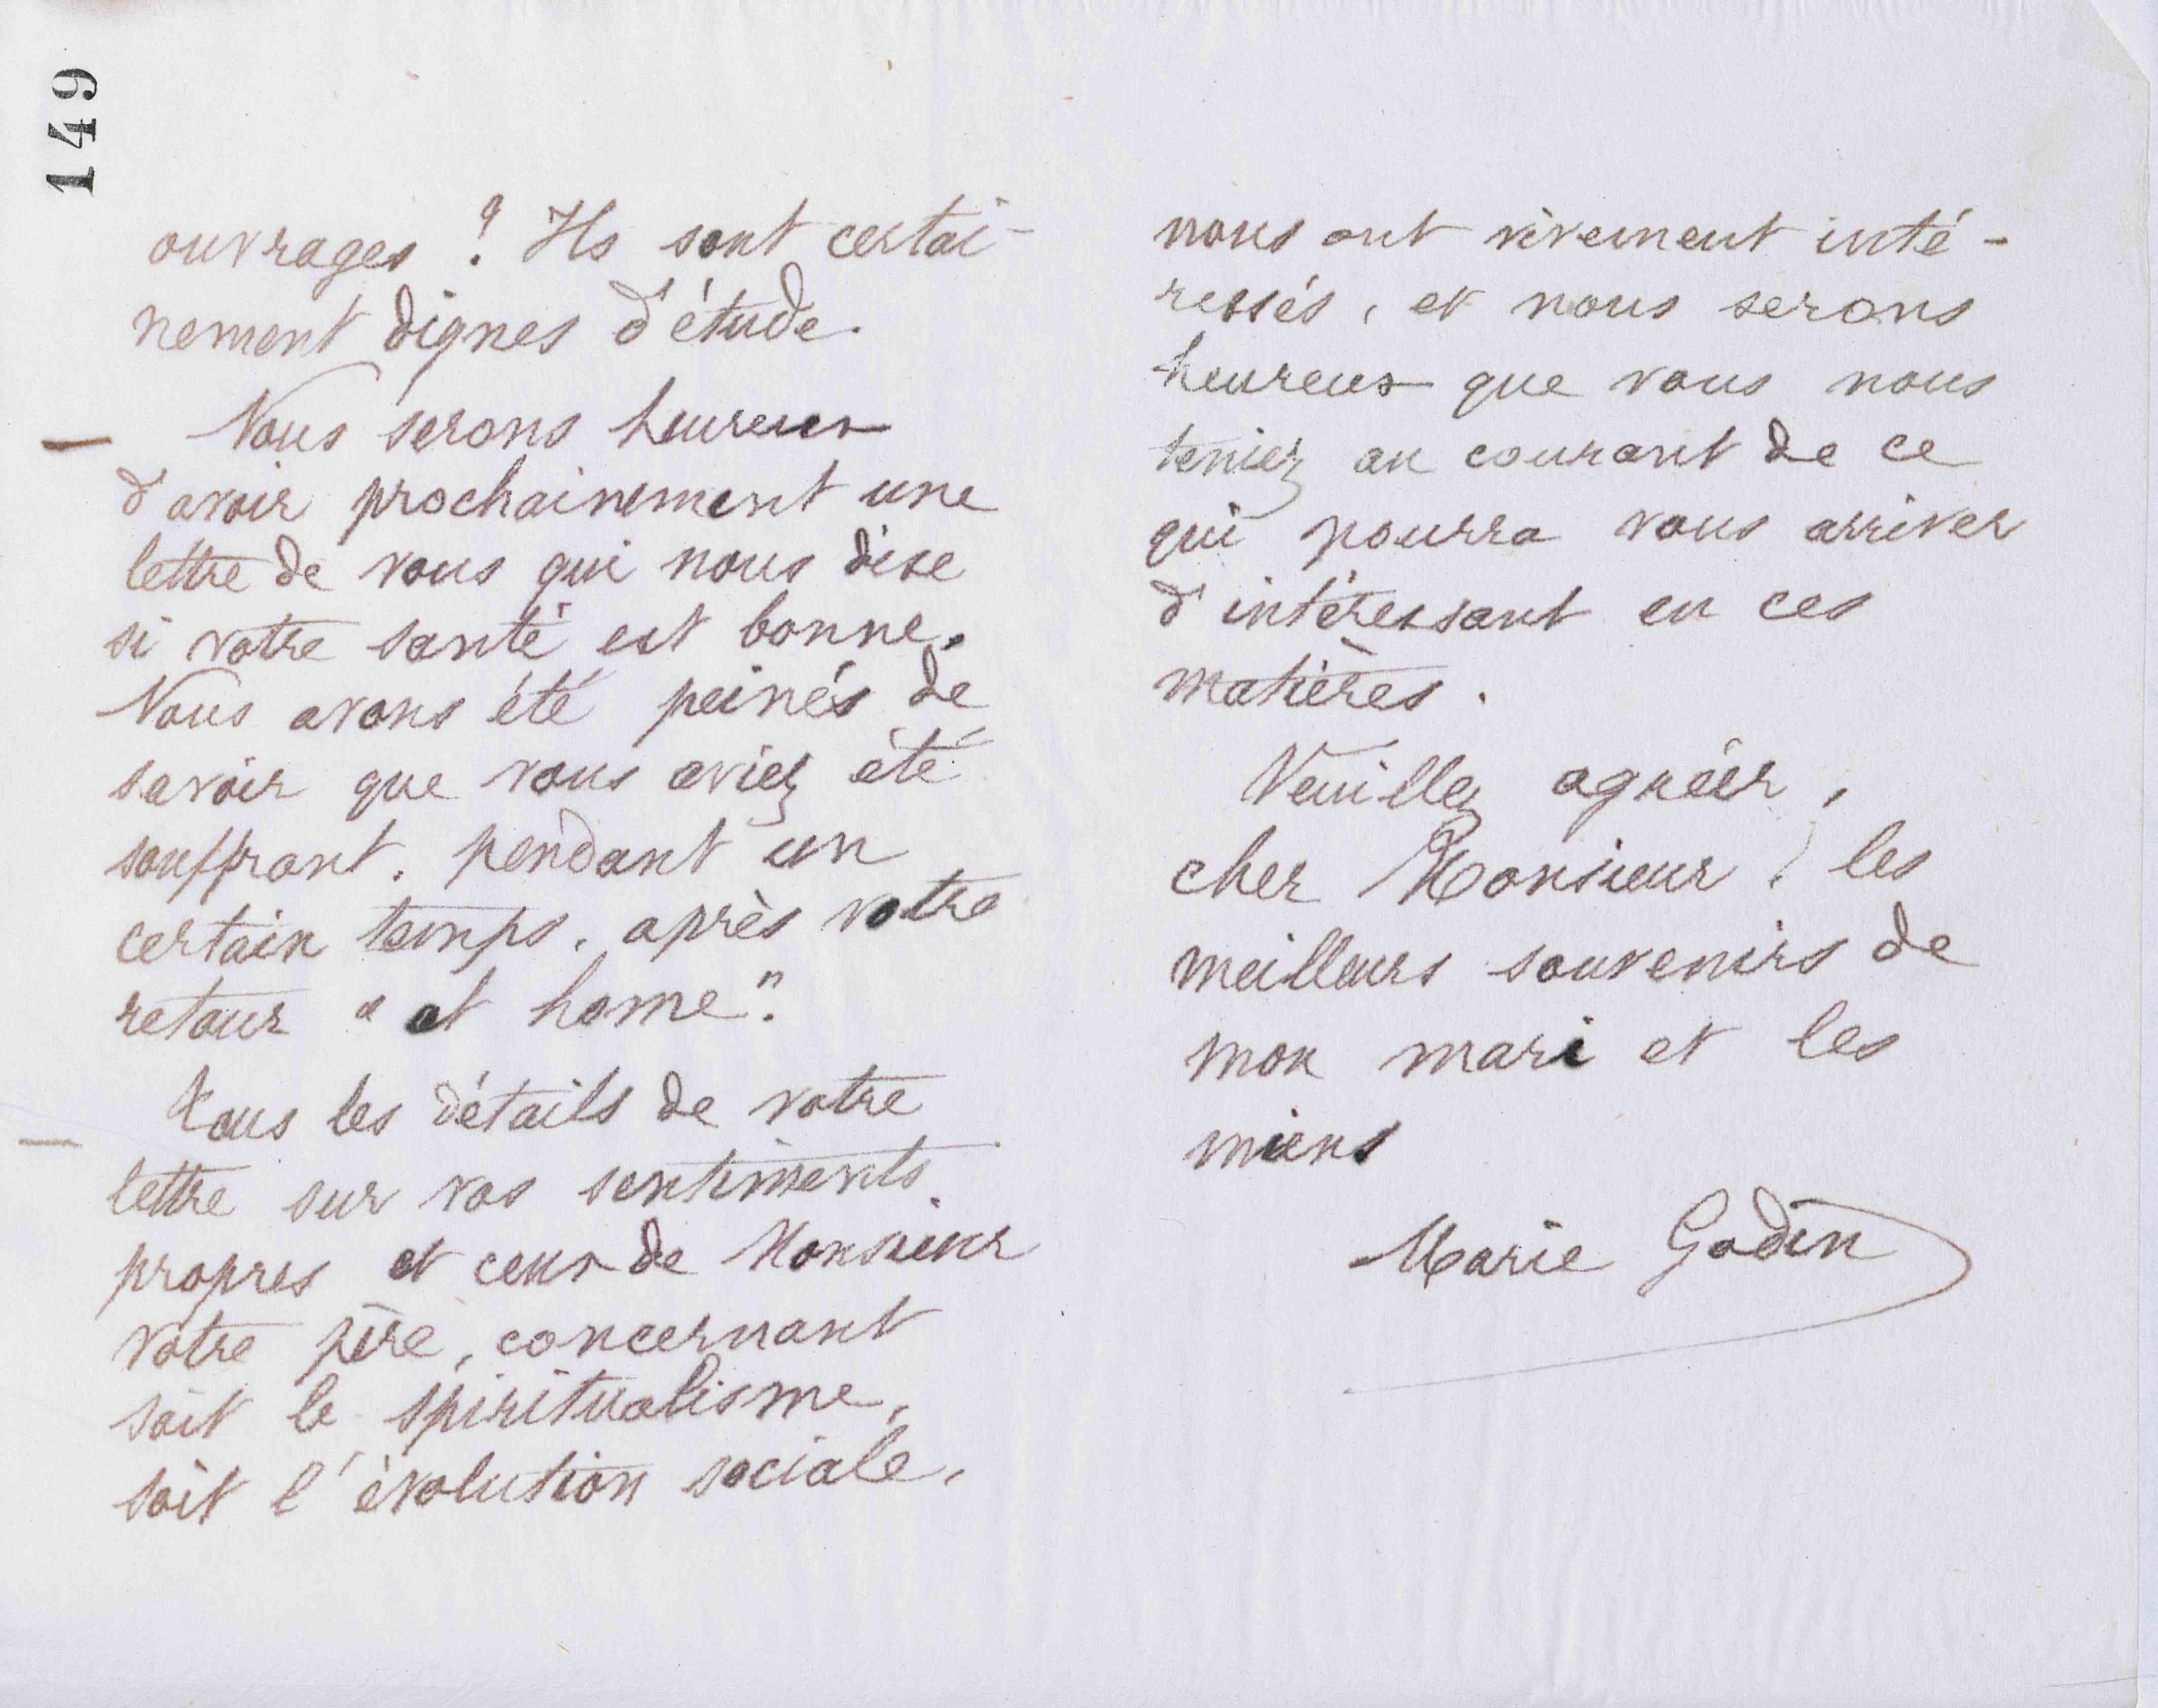 149
ouvrages ? Ils sont certai-
nement dignes d'étude.
Nous serons heureux
d'avoir prochainement une
lettre de vous qui nous dise
si votre santé est bonne.
Nous avons été peinés de
savoir que vous aviez été
souffrant, pendant un
certain temps, après votre
retour "at home".
Tous les détails de votre
lettre sur vos sentiments
propres et ceux de Monsieur
votre père, concernant
soit le spiritualisme,
soit l'évolution sociale,
nous ont vivement inté-
ressés, et nous serons
heureux que vous nous
teniez au courant de ce
qui pourra vous arriver
d'intéressant en ces
matières.
Veuillez agréer,
cher Monsieur, les
meilleurs souvenirs de
mon mari et les
miens
Marie Godin